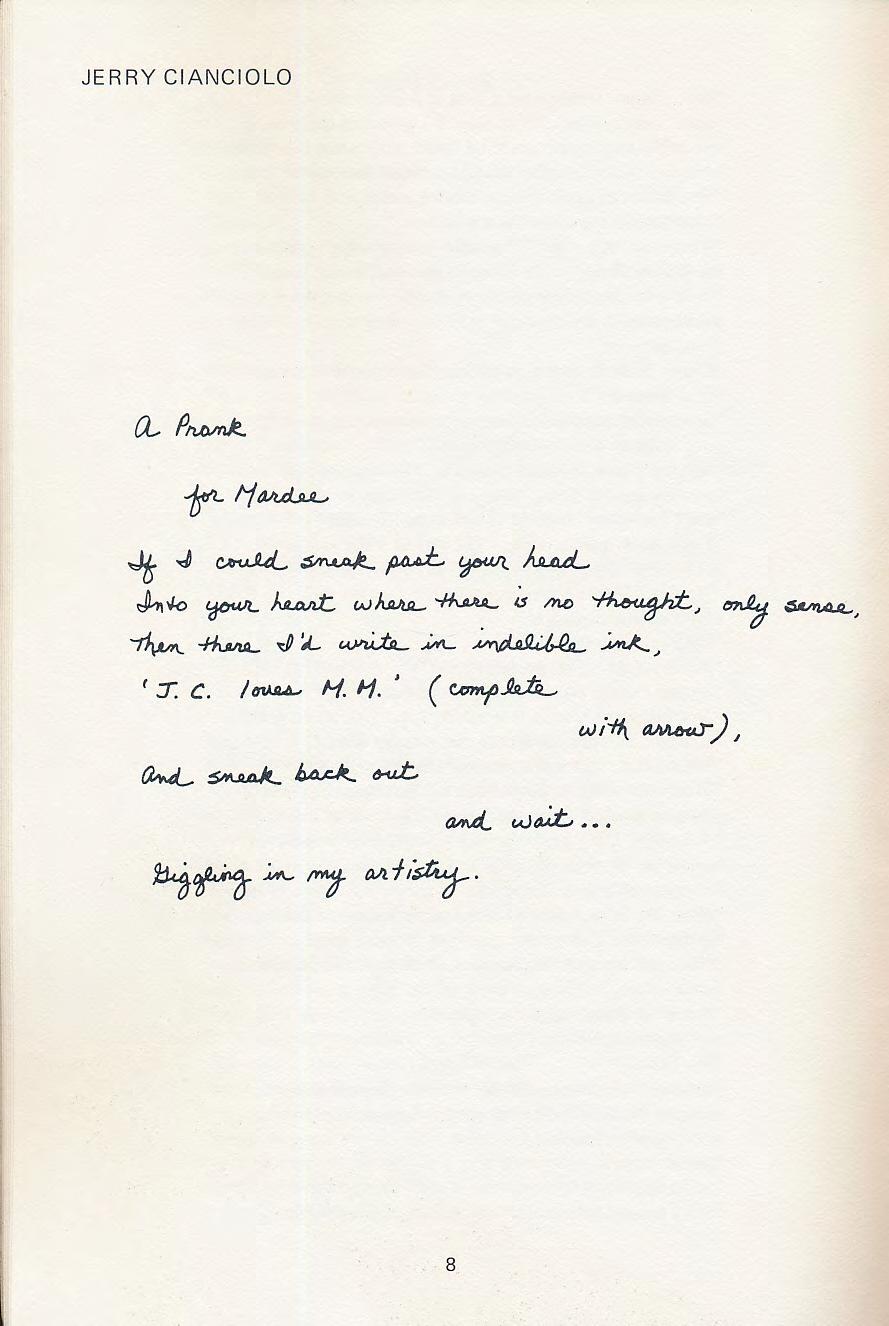 JERRY CIANCIOLO
A Prank
for Mardee
If I could sneak past your head
Into your heart where there is no thought, only sense,
Then there I'd write in indelible ink,
'J. C. loves M. M.' (complete
with arrow),
And sneak back out
and wait...
Giggling in my artistry.
8